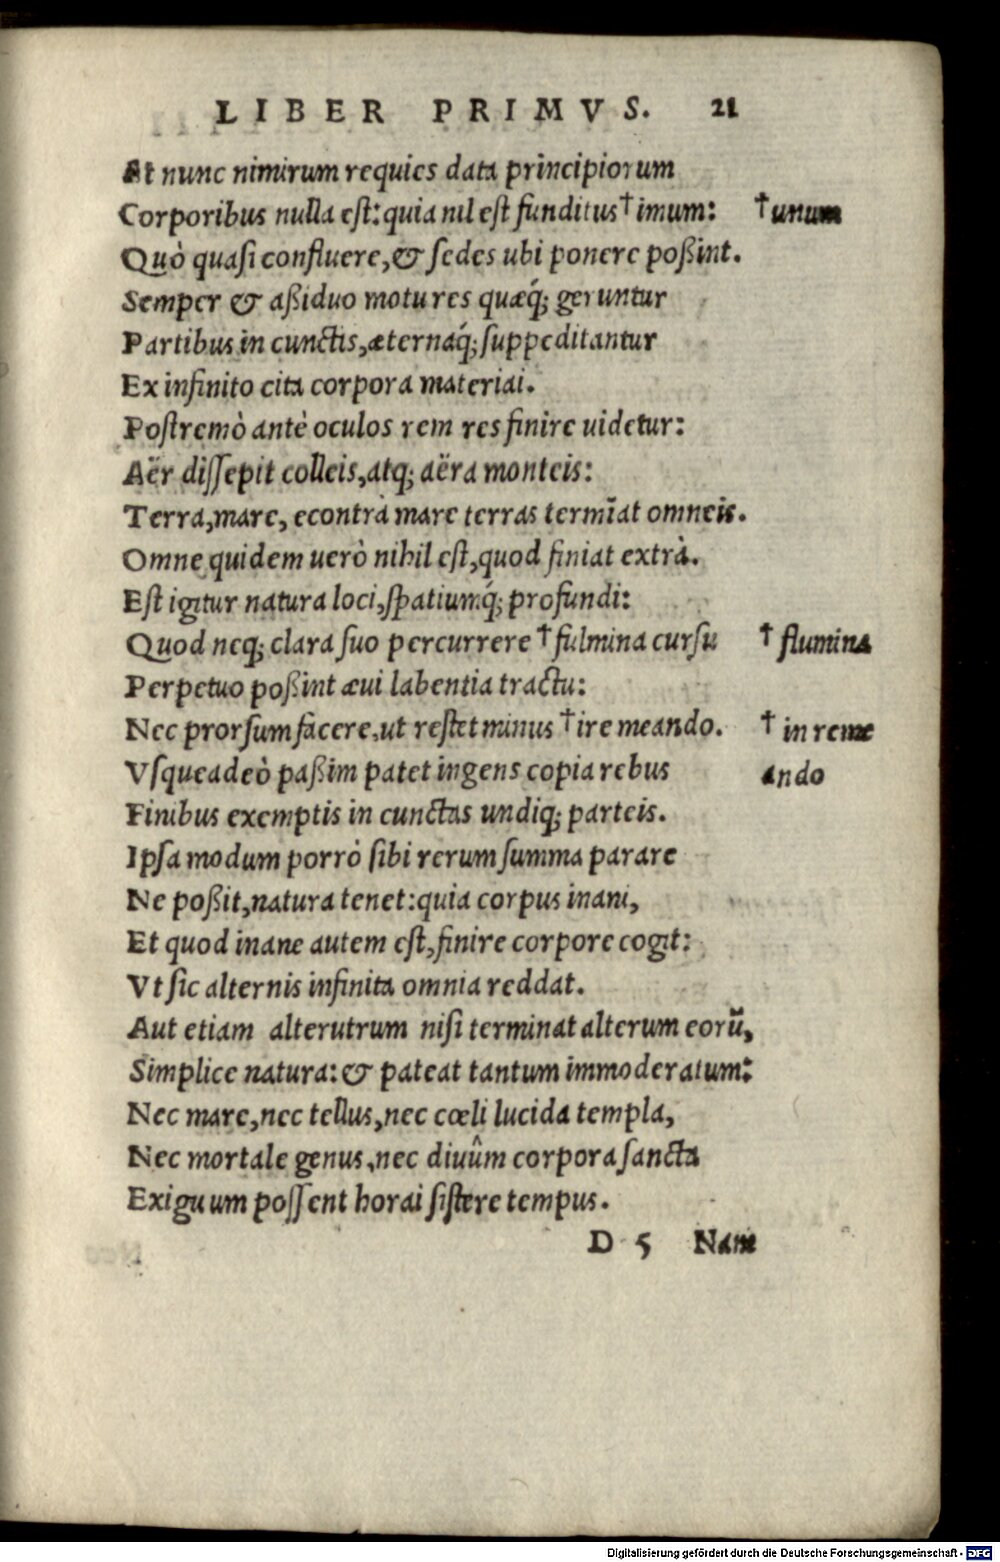 LIBER PRIMVS. 21
At nunc nimirum requies data principiorum
Corporibus nulla eſt: quia nil eſt funditus †imum: †unum
Quò quaſi confluere, & ſedes ubi ponere poßint.
Semper & aßiduo motu res quæq́; geruntur
Partibus in cunctis, æternaq́; ſuppeditantur
Ex infinito cita corpora materiai.
Poſtremò antè oculos rem res finire uidetur:
Aër diſſepit colleis, atq; aëra monteis:
Terra, mare, econtrà mare terras termīat omneis.
Omne quidem uerò nihil eſt, quod finiat extrà.
Eſt igitur natura loci, ſpatiumq́; profundi:
Quod neq; clara ſuo percurrere †fulmina curſu † flumina
Perpetuo poßint æui labentia tractu:
Nec prorſum facere, ut reſtet minus †ire meando. † in reme
Vſqueadeò paßim patet ingens copia rebus ando
Finibus exemptis in cunctas undiq; parteis.
Ipſa modum porrò ſibi rerum ſumma parare
Ne poßit, natura tenet: quia corpus inani,
Et quod inane autem eſt, finire corpore cogit:
Vt ſic alternis infinita omnia reddat.
Aut etiam alterutrum niſi terminat alterum eorū,
Simplice natura: & pateat tantum immoderatum:
Nec mare, nec tellus, nec cœli lucida templa,
Nec mortale genus, nec diuûm corpora ſancta
Exiguum poſſent horai ſiſtere tempus.
D 5 Nam
Digitalisierung gefördert durch die Deutsche Forschungsgemeinschaft - DFG